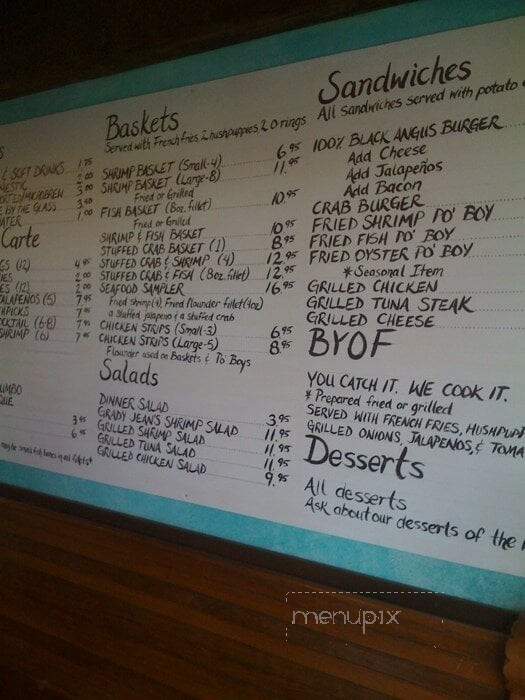 & SOFT DRINKS 1.75
2.00
3.00
BY THE GLASS 3.50
1.00
Carte
(12) 4.95
2.00
(12) 2.00
JALAPENOS (5) 7.95
7.95
(6-8) 7.95
SHRIMP (6) 7.95
3.95
6.95
Baskets
Served with French fries 2 hushpuppies 2 O rings
SHRIMP BASKET (Small-4) 6.95
SHRIMP BASKET (Large-8) 11.95
Fried or Grilled
FISH BASKET (8oz. fillet) 10.95
Fried or Grilled
SHRIMP & FISH BASKET 10.95
STUFFED CRAB BASKET (1) 8.95
STUFFED CRAB & SHRIMP (4) 12.95
STUFFED CRAB & FISH (8oz. fillet) 12.95
SEAFOOD SAMPLER 16.95
Fried shrimp(4), Fried flounder fillet(4oz)
a stuffed jalapeno & a stuffed crab
CHICKEN STRIPS (Small-3) 6.95
CHICKEN STRIPS (Large-5) 8.95
Flounder used on Baskets & Po Boys
Salads
DINNER SALAD 3.95
GRADY JEAN'S SHRIMP SALAD 11.95
GRILLED SHRIMP SALAD 11.95
GRILLED TUNA SALAD 11.95
GRILLED CHICKEN SALAD 9.95
Sandwiches
All sandwiches served with potato
100% BLACK ANGUS BURGER
Add Cheese
Add Jalapeños
Add Bacon
CRAB BURGER
FRIED SHRIMP PO' BOY
FRIED FISH PO' BOY
FRIED OYSTER PO' BOY
*Seasonal Item
GRILLED CHICKEN
GRILLED TUNA STEAK
GRILLED CHEESE
BYOF
YOU CATCH IT. WE COOK IT.
* Prepared fried or grilled
SERVED WITH FRENCH FRIES, HUSHPUPP
GRILLED ONIONS, JALAPENOS, & TOMA
Desserts
All desserts
Ask about our desserts of the
menupix